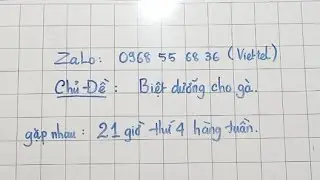 Zalo: 0968 55 68 36 (Viettel)
Chủ-Đề: Biệt dưỡng cho gà.
gặp nhau: 21 giờ thứ 4 hàng tuần.